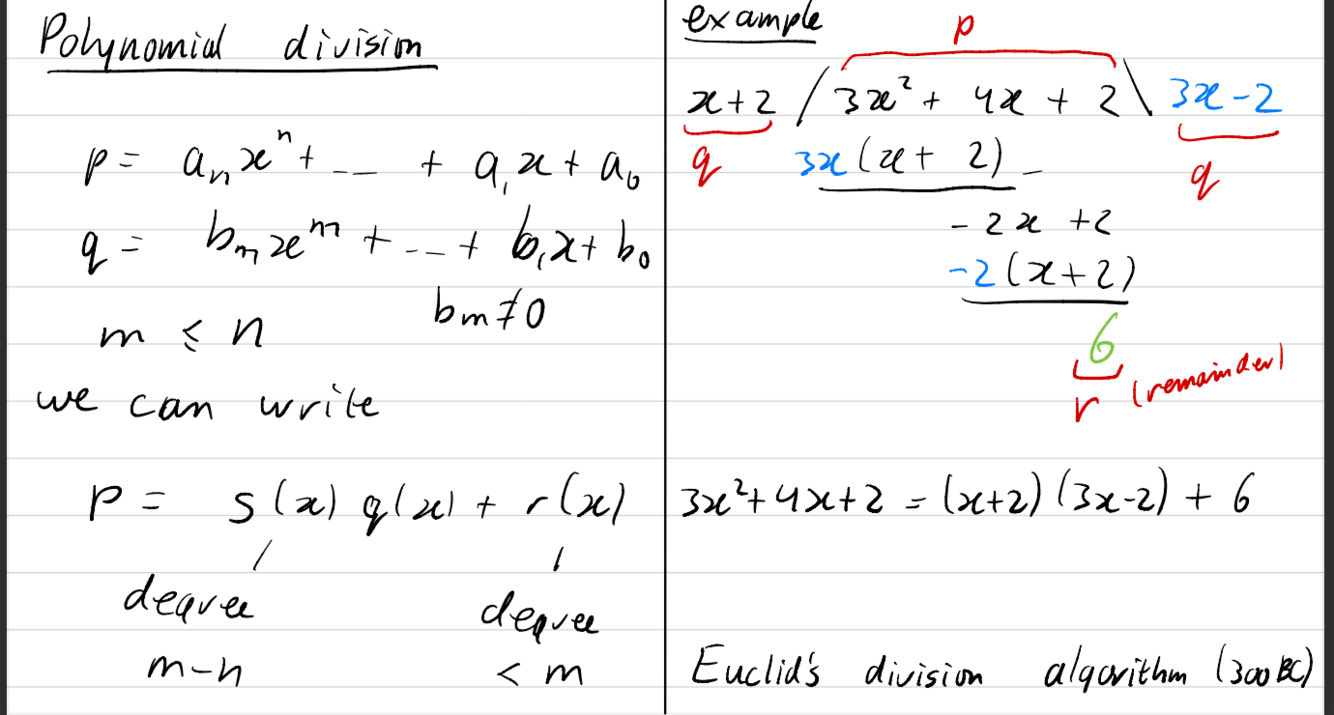 Polynomial division
p = aₙxⁿ + ... + a₁x + a₀
q = bₘxᵐ + ... + b₁x + b₀
bₘ ≠ 0
m ≤ n
we can write
p = s(x) q(x) + r(x)
degree degree
m-n < m
example
p
x+2 / 3x² + 4x + 2 \ 3x-2
q 3x(x + 2) - q
-2x +2
-2(x+2)
6
r (remainder)
3x²+4x+2 = (x+2)(3x-2) + 6
Euclid's division algorithm (300 BC)